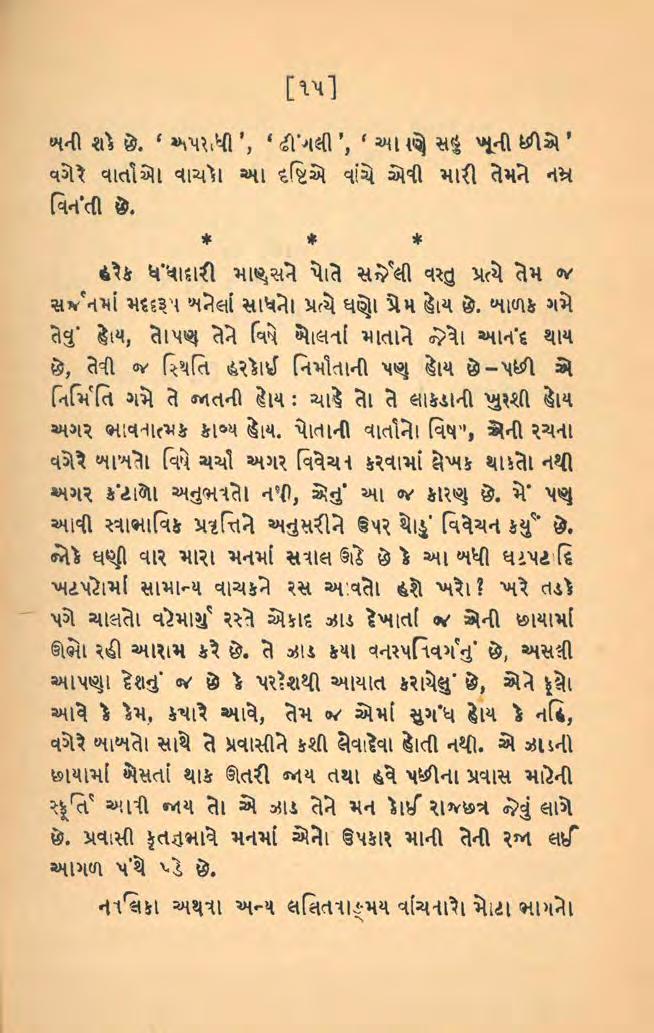 [૧૫]
બની શકે છે. ‘ અપરાધી ’, ‘ ઢીંગલી ’, ‘ આપણે સહુ ખૂની છીએ ’
વગેરે વાર્તાઓ વાચકો આ દૃષ્ટિએ વાંચે એવી મારી તેમને નમ્ર
વિનંતી છે.
* * *
હરેક ધંધાદારી માણસને પોતે સર્જેલી વસ્તુ પ્રત્યે તેમ જ
સર્જનમાં મદદરૂપ બનેલાં સાધનો પ્રત્યે ઘણો પ્રેમ હોય છે. બાળક ગમે
તેવું હોય, તોપણ તેને વિષે બોલતાં માતાને જેવો આનંદ થાય
છે, તેવી જ સ્થિતિ હરકોઈ નિર્માતાની પણ હોય છે – પછી એ
નિર્મિતિ ગમે તે જાતની હોય : ચાહે તો તે લાકડાની ખુરશી હોય
અગર ભાવનાત્મક કાવ્ય હોય. પોતાની વાર્તાનો વિષય, એની રચના
વગેરે બાબતો વિષે ચર્ચા અગર વિવેચન કરવામાં લેખક થાકતો નથી
અગર કંટાળો અનુભવતો નથી, એનું આ જ કારણ છે. મેં પણ
આવી સ્વાભાવિક પ્રવૃત્તિને અનુસરીને ઉપર થોડું વિવેચન કર્યું છે.
જોકે ઘણી વાર મારા મનમાં સવાલ ઊઠે છે કે આ બધી ઘટપટાદિ
ખટપટોમાં સામાન્ય વાચકને રસ આવતો હશે ખરો? ખરે તડકે
પગે ચાલતો વટેમાર્ગુ રસ્તે એકાદ ઝાડ દેખાતાં જ એની છાયામાં
ઊભો રહી આરામ કરે છે. તે ઝાડ કયા વનસ્પતિવર્ગનું છે, અસલી
આપણા દેશનું જ છે કે પરદેશથી આયાત કરાયેલું છે, એને ફૂલો
આવે કે કેમ, ક્યારે આવે, તેમ જ એમાં સુગંધ હોય કે નહિ,
વગેરે બાબતો સાથે તે પ્રવાસીને કશી લેવાદેવા હોતી નથી. એ ઝાડની
છાયામાં બેસતાં થાક ઊતરી જાય તથા હવે પછીના પ્રવાસ માટેની
સ્ફૂર્તિ આવી જાય તો એ ઝાડ તેને મન કોઈ રાજછત્ર જેવું લાગે
છે. પ્રવાસી કૃતજ્ઞભાવે મનમાં એનો ઉપકાર માની તેની રજા લઈ
આગળ પંથે પડે છે.
નવલિકા અથવા અન્ય લલિતવાઙ્મય વાંચનારો મોટા ભાગનો